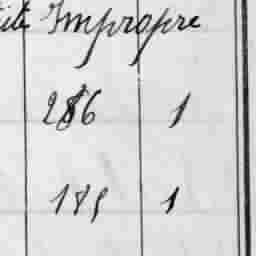 ité Impropre
286 1
185 1